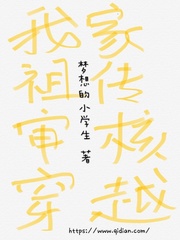 我家
祖传
审核
穿越
梦想的小学生 著
https://www.qidian.com/